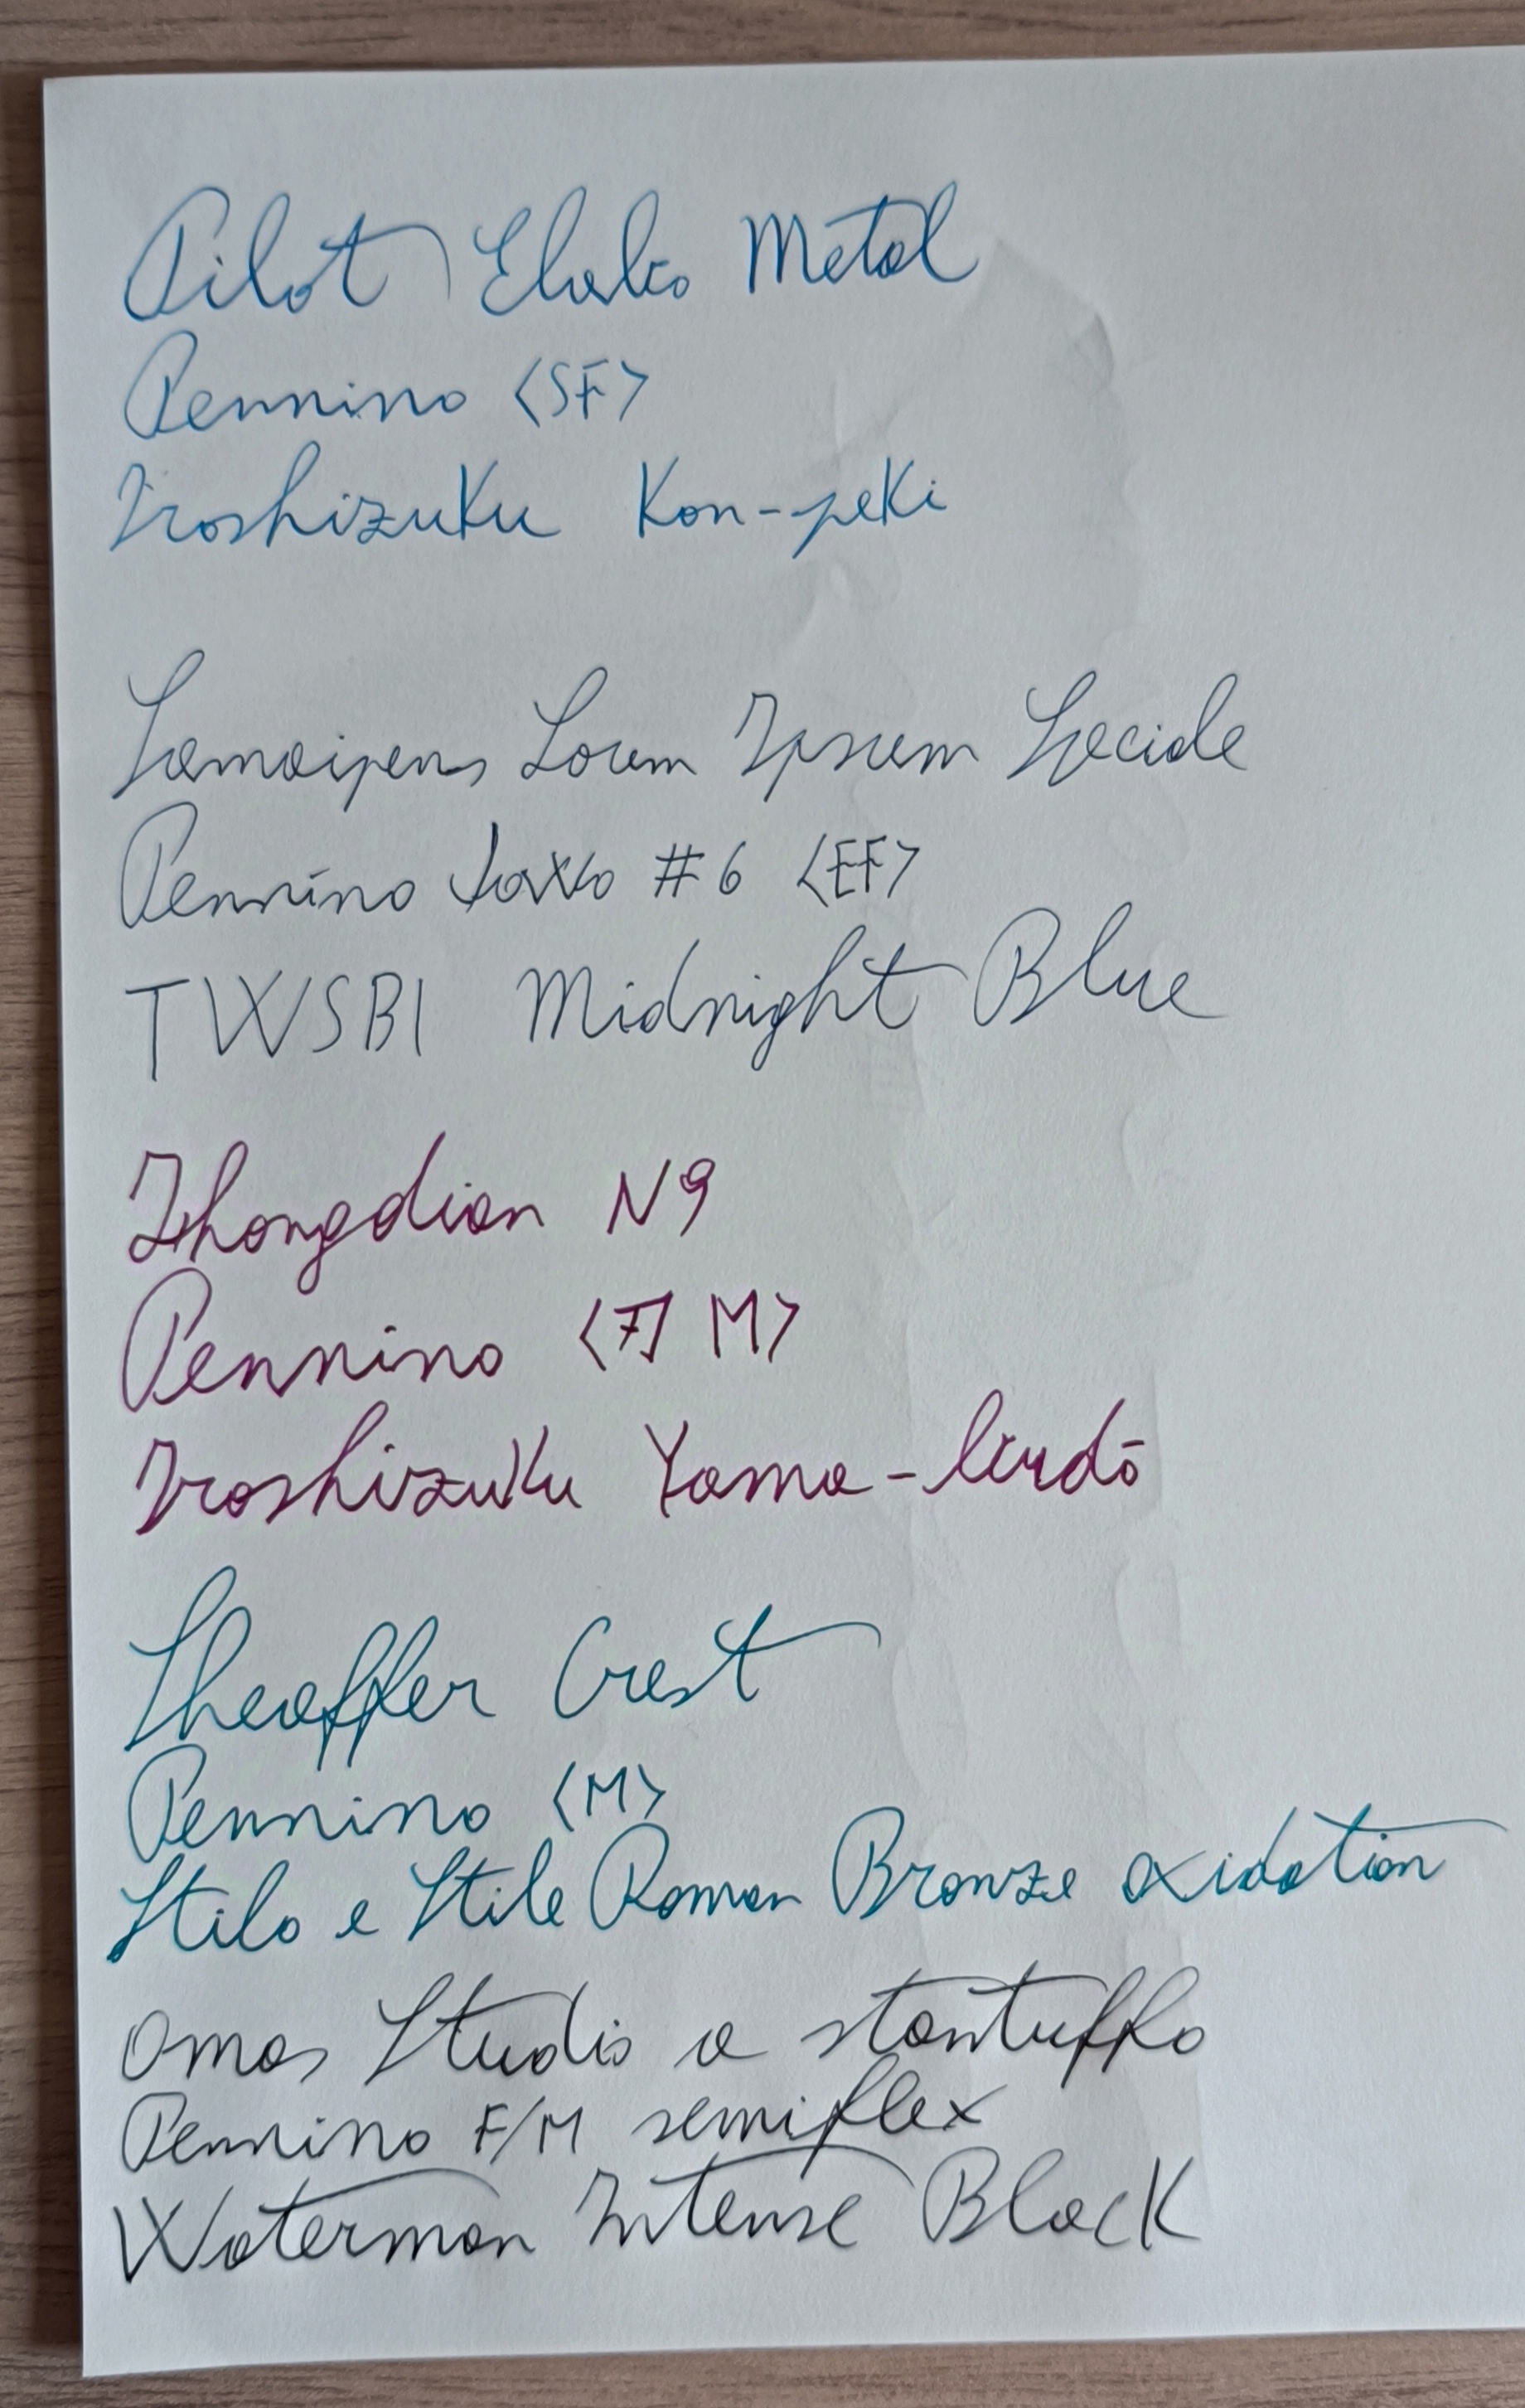 Pilot Elabo Metal
Pennino <SF>
Iroshizuku Kon-peki
Lamaipens Lorem Ipsum Lucide
Pennino Jowo #6 <EF>
TWSBI Midnight Blue
Zhongdian N9
Pennino <F] M>
Iroshizuku Yama-budō
Sheaffer Crest
Pennino <M>
Stilo e Stile Roman Bronze oxidation
Omas Studio a stantuffo
Pennino F/M semiflex
Waterman Intense Black